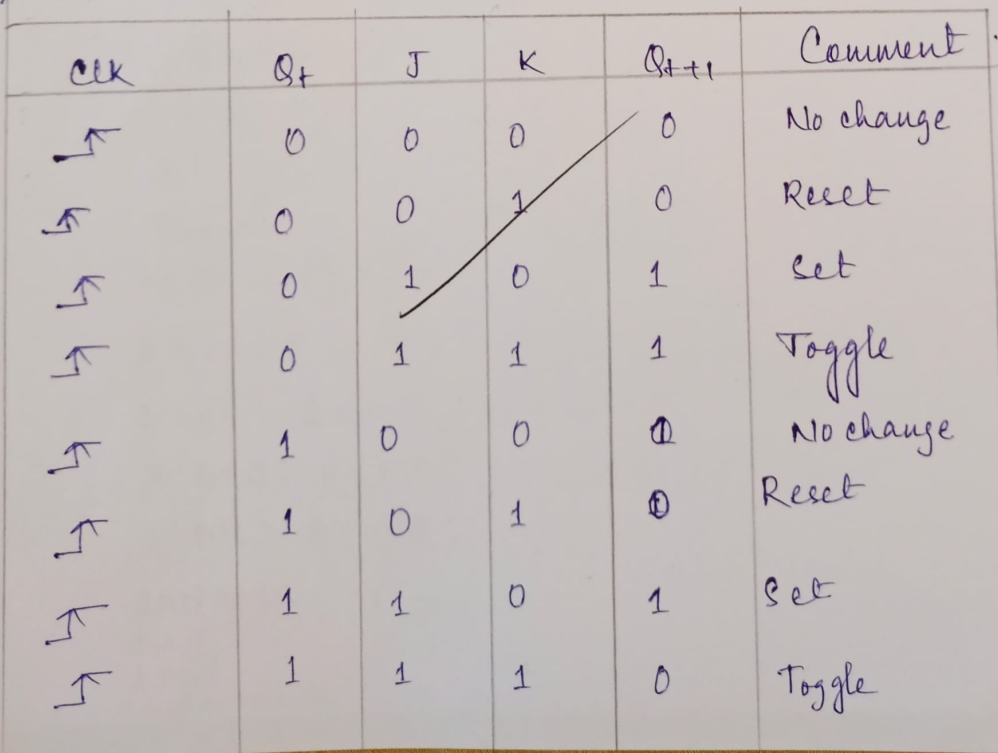 Clk Qt J K Qt+1 Comment
0 0 0 0 No change
0 0 1 0 Reset
0 1 0 1 Set
0 1 1 1 Toggle
1 0 0 1 No change
1 0 1 0 Reset
1 1 0 1 Set
1 1 1 0 Toggle